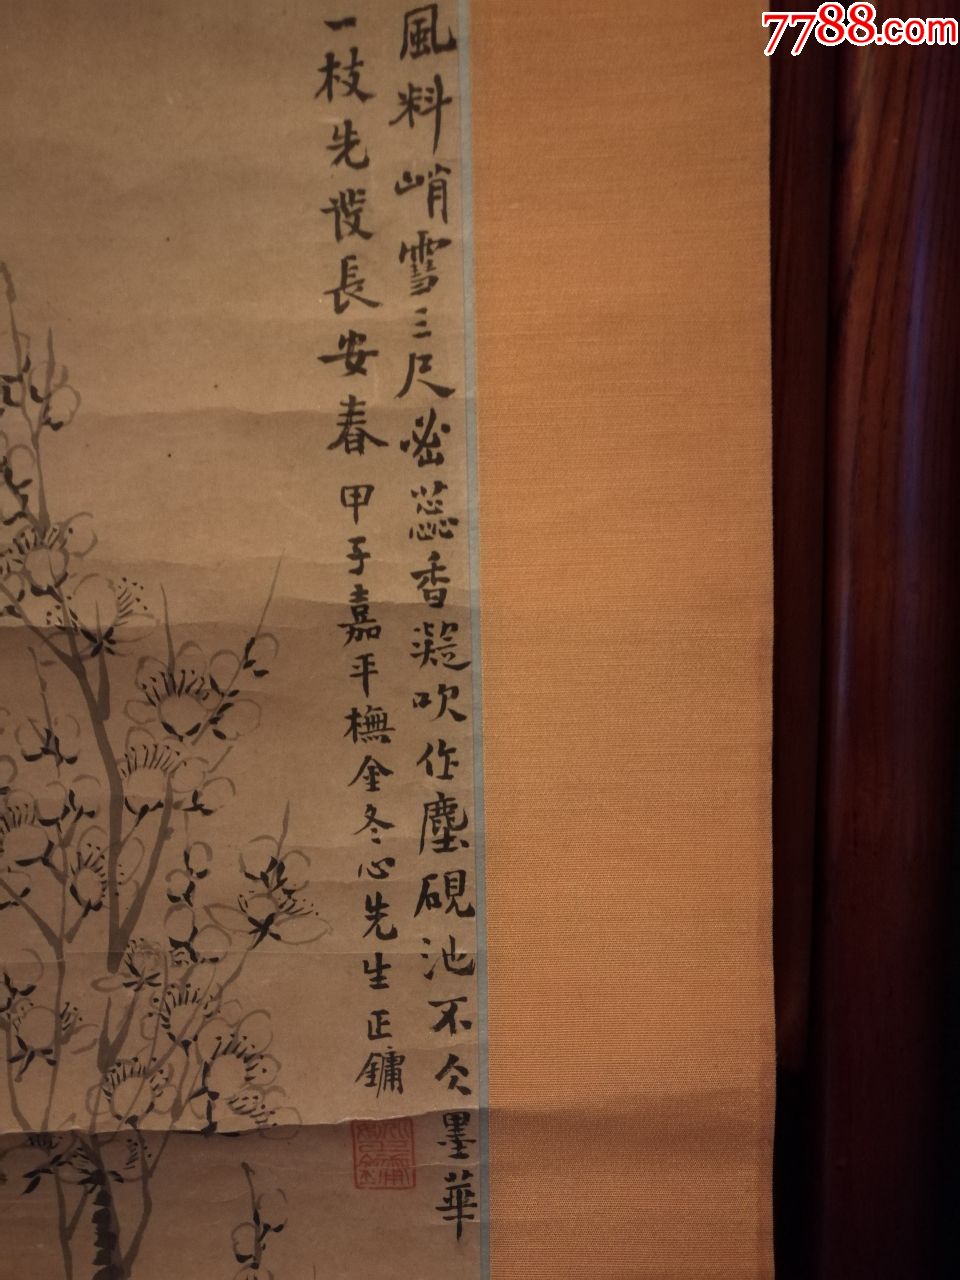 7788.com
風料峭雪三尺密蕊香凝吹作塵硯池不令墨華
一枝先設長安春
甲子嘉平橅金冬心先生正鏞